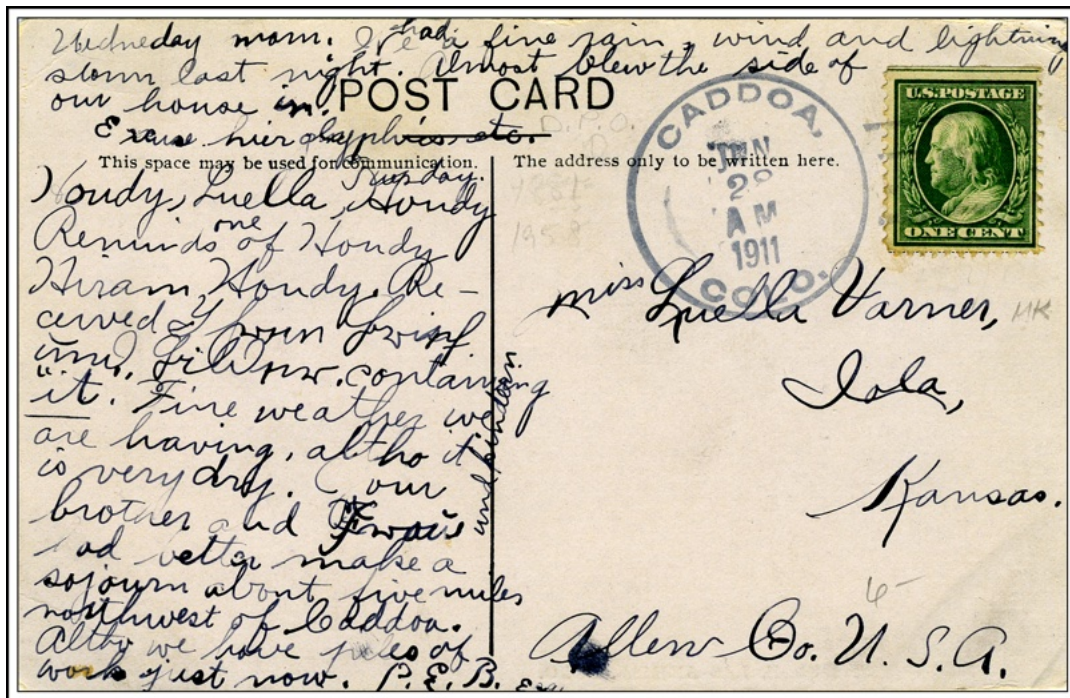 Wedneday morn. We had a fine rain, wind and lightning
storm last night. Almost blew the side of
our house in.
POST CARD
Excuse hieroglyphics etc.
D.P.O.
This space may be used for communication.
The address only to be written here.
Tuesday.
Howdy, Luella, Howdy
Reminds one of Howdy
Hiram, Howdy. Re-
ceived
containing
"it. Fine weather we
are having, altho it
is very dry. our
brother and
better make a
sojourn about five miles
northwest of Caddoa.
Altho we have piles of
work just now. P.E.B.
CADDOA,
JUN
28
AM
1911
COLO.
U.S. POSTAGE
ONE CENT
1881-
1958
Miss Luella Varner,
MK
Iola,
Kansas.
6-
Allen Co. U.S.A.